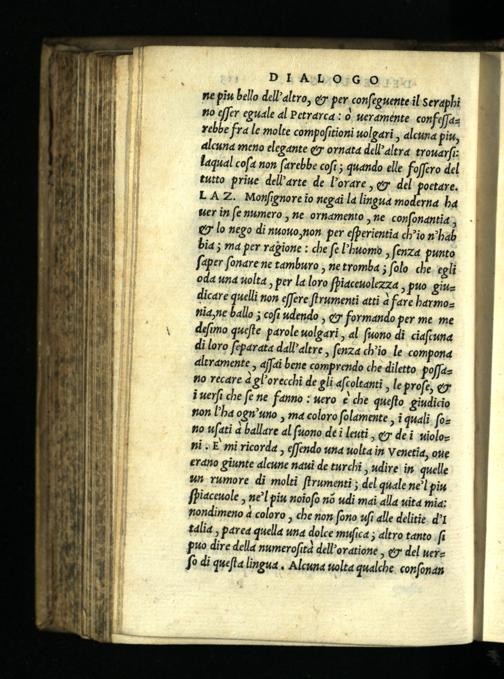 DIALOGO
ne piu bello dell'altro, & per conseguente il Seraphi
no esser eguale al Petrarca : ò ueramente confessa=
rebbe fra le molte compositioni uolgari, alcuna piu,
alcuna meno elegante & ornata dell'altra trouarsi:
laqual cosa non sarebbe cosi; quando elle fossero del
tutto priue dell'arte de l'orare, & del poetare.
LAZ. Monsignore io negai la lingua moderna ha
uer in se numero, ne ornamento, ne consonantia,
& lo nego di nuouo, non per esperientia ch'io n'hab
bia; ma per ragione : che se l'huomo, senza punto
saper sonare ne tamburo, ne tromba; solo che egli
oda una uolta, per la loro spiaceuolezza, puo giu=
dicare quelli non essere strumenti atti à fare harmo=
nia, ne ballo; cosi udendo, & formando per me me
desimo queste parole uolgari, al suono di ciascuna
di loro separata dall'altre, senza ch'io le compona
altramente, assai bene comprendo che diletto possa=
no recare à gl'orecchi de gli ascoltanti, le prose, &
i uersi che se ne fanno : uero è che questo giudicio
non l'ha ogn'uno, ma coloro solamente, i quali so=
no usati à ballare al suono de i leuti, & de i uiolo=
ni. E mi ricorda, essendo una uolta in Venetia, oue
erano giunte alcune naui de turchi, udire in quelle
un rumore di molti strumenti; del quale ne'l piu
spiaceuole, ne'l piu noioso nō udi mai alla uita mia:
nondimeno à coloro, che non sono usi alle delitie d'I
talia, parea quella una dolce musica; altro tanto si
puo dire della numerosità dell'oratione, & del uer=
so di questa lingua. Alcuna uolta qualche consonan